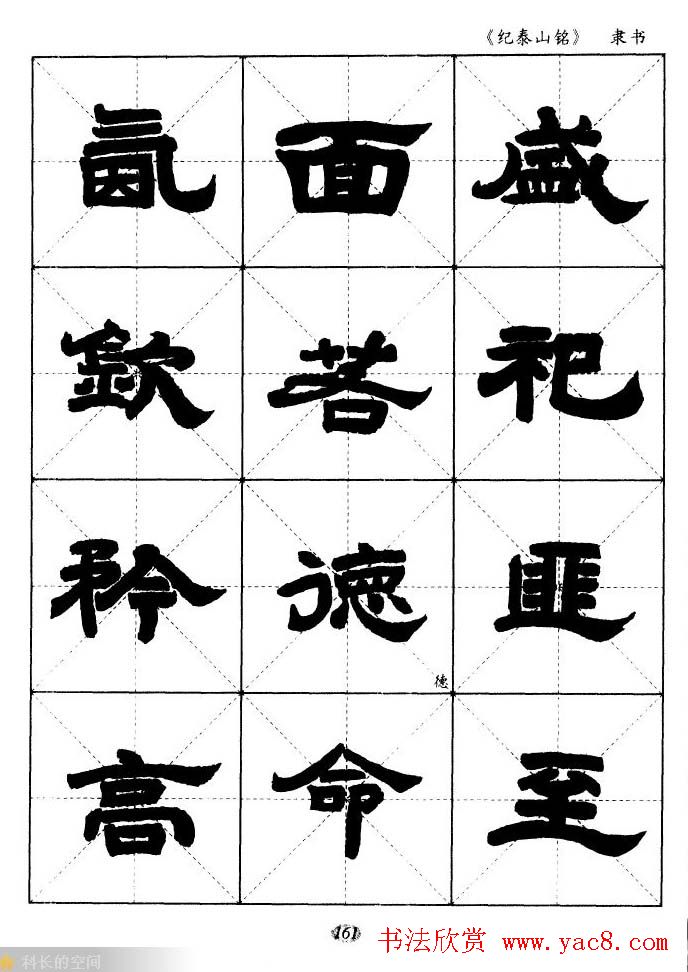 《纪泰山铭》 隶书
氤 面 盛
欽 若 祀
矜 徳 匪
德
高 命 至
161
书法欣赏 www.yac8.com
科长的空间